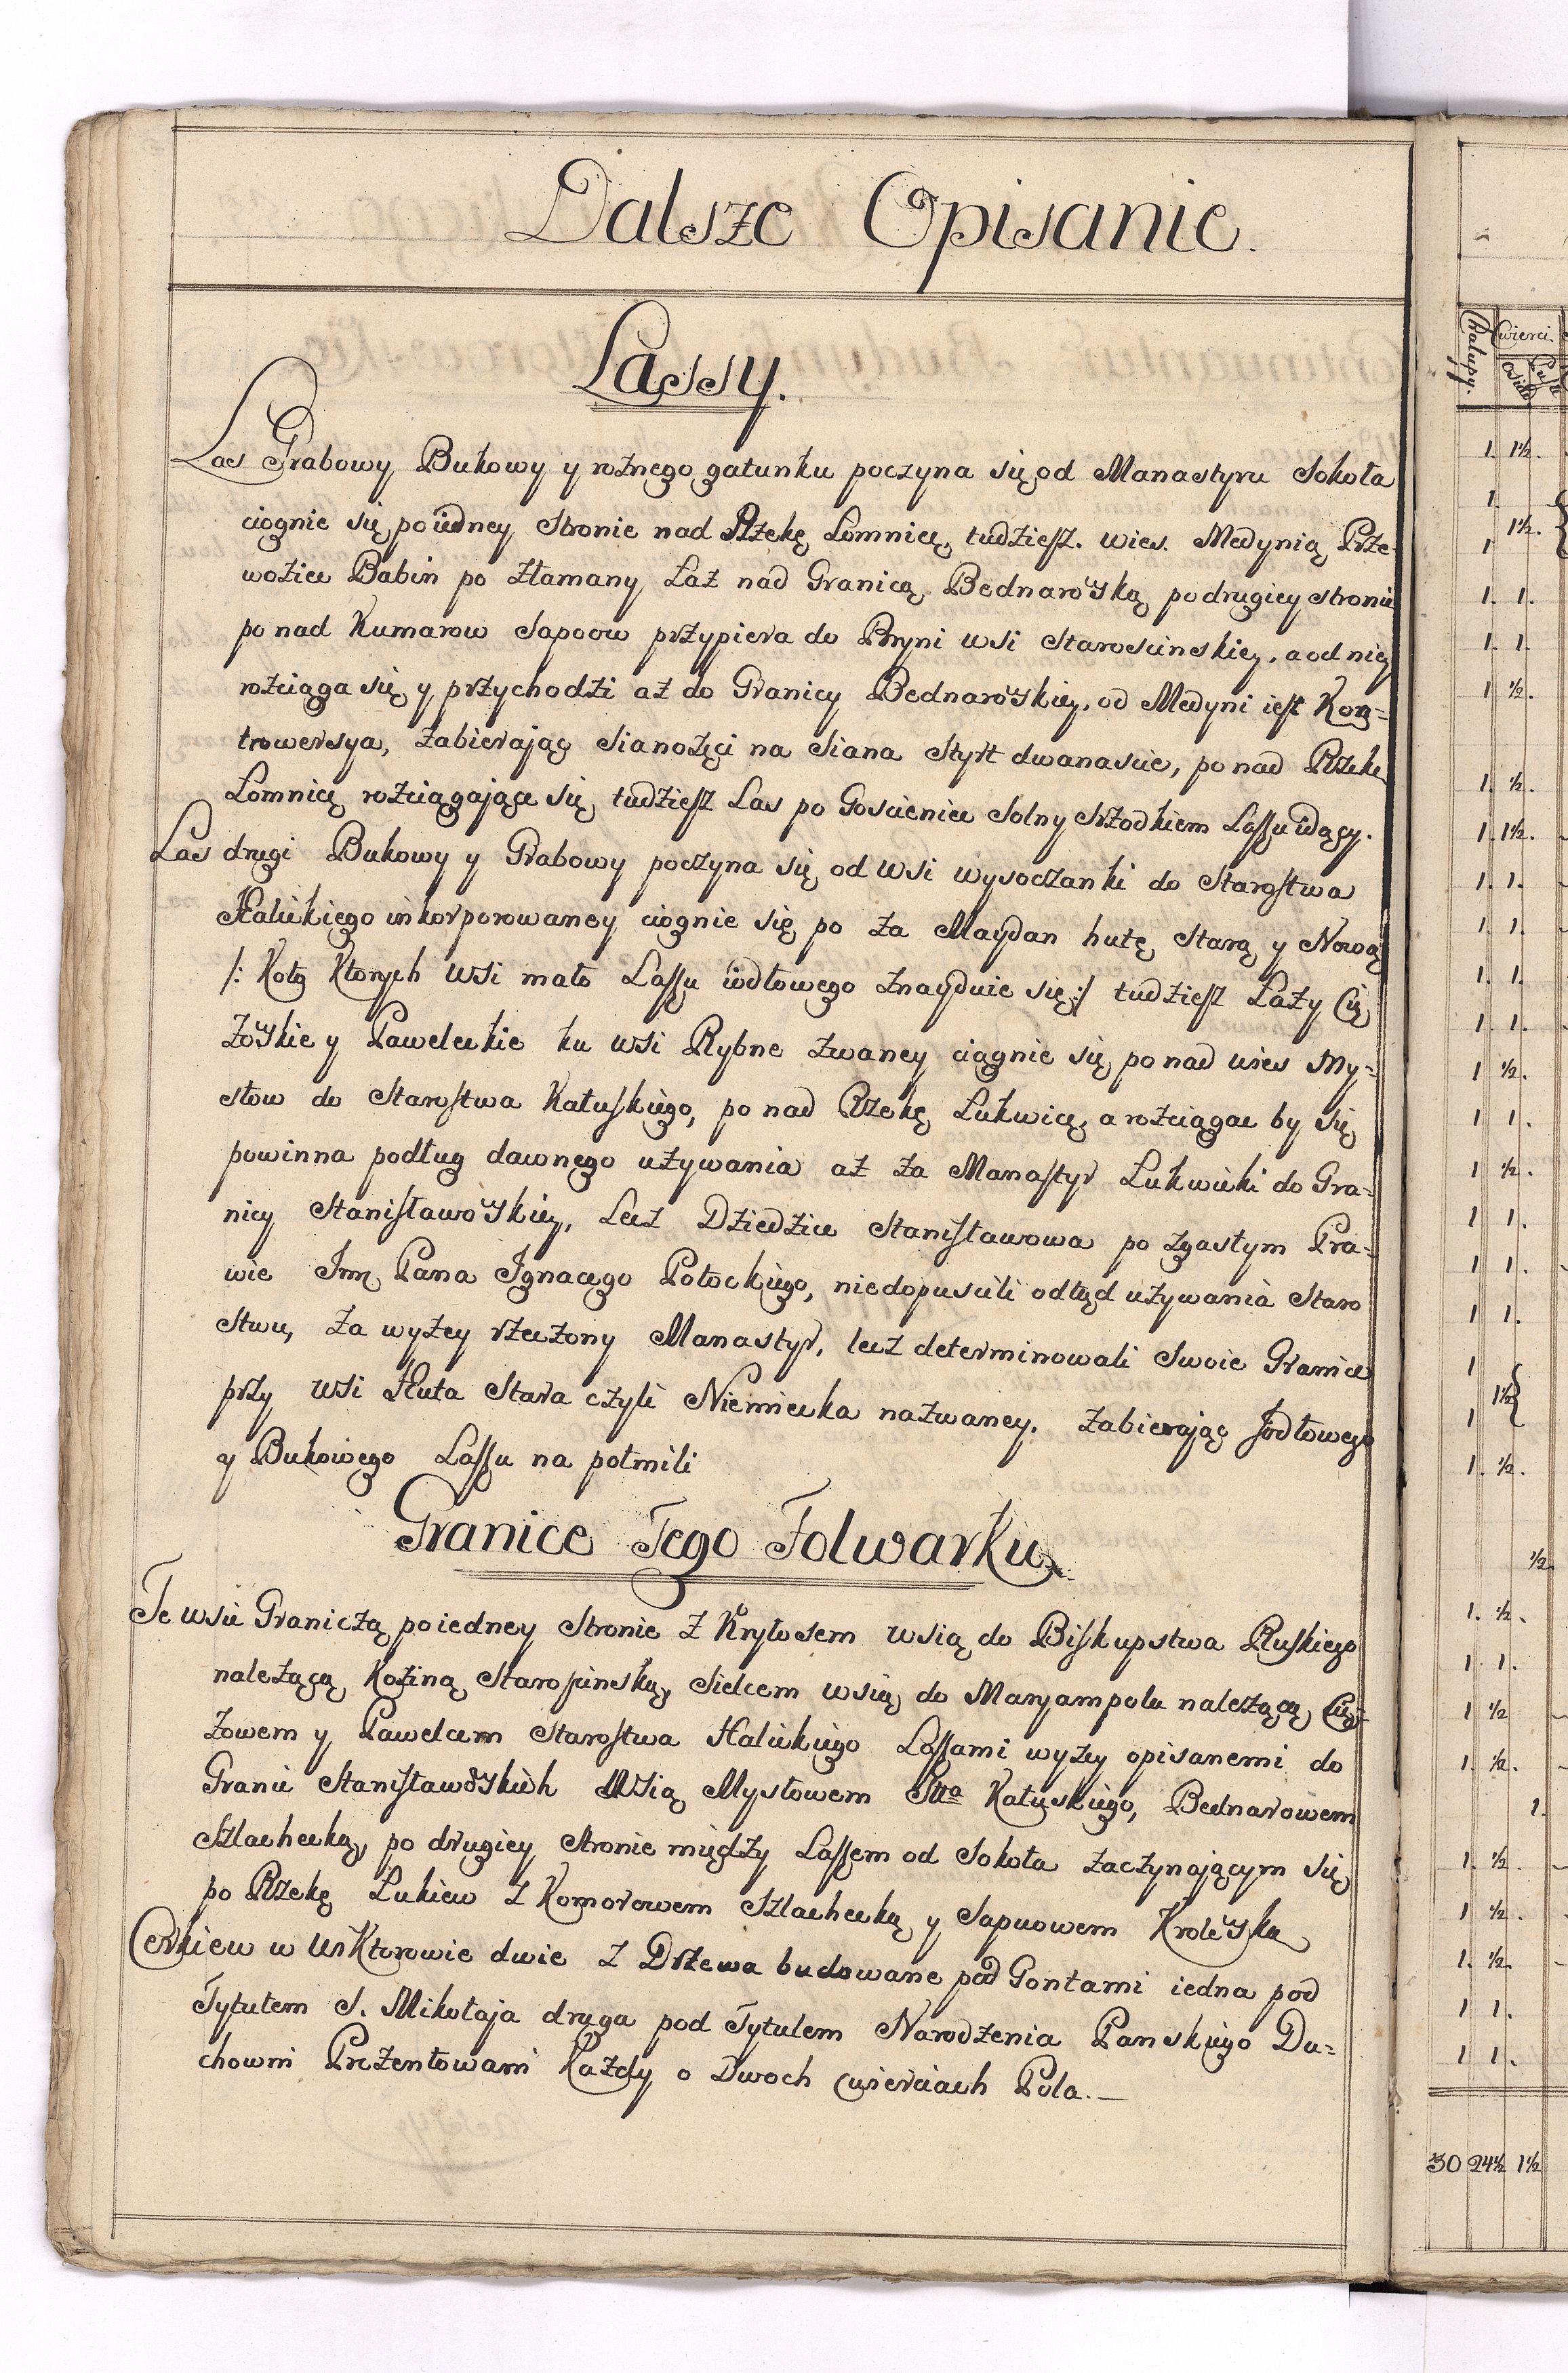 Dalsze Opisanie.
Lassy.
Las Grabowy Bukowy y rożnego gatunku poczyna się od Manastyru Sokoła
ciognie się po iedney Stronie nad Rzekę Łomnicę, tudziesz. wies. Medynią Prze-
woziec Babin po złamany Łaz nad Granicą Bednarowską po drugiey stronie
po nad Kumarow Sapoow przypiera do Bryni wsi Staroscinskiey, a od niey
rozciąga się y przychodzi aż do Granicy Bednarowskiey, od Medyni iest Kon=
trowersya, zabierając Sianożęci na Siana Styrt dwanascie, po nad Rzekę
Łomnicę rozciągające się tudziesz Las po Goscieniec Solny Srzodkiem Lassu idący.
Las drugi Bukowy y Grabowy poczyna się od wsi wysoczanki do Starostwa
Halickiego inkorporowaney ciognie się po za Maydan hutę Starą y Nową
/: Koło Ktorych wsi mało Lassu iodłowego znayduie się :/ tudziesz Łazy Cię
żowskie y Paweleckie ku wsi Rybne zwaney ciagnie się po nad wies My=
słow do Starostwa Kałuskiego, po nad Rzekę Łukwicę, a rozciągac by się
powinna podług dawnego używania aż za Manastyr Łukwicki do Gra=
nicy Stanisławowskiey, Lecz Dziedzice Stanisławowa po zgasłym Pra=
wie Jm Pana Ignacego Potockiego, niedopuscili odtąd używania Staro
stwu, za wyżey rzeczony Manastyr, lecz determinowali Swoie Granice
przy wsi Huta Stara czyli Niemiecka nazwaney. zabierając Jodłowego
y Bukowego Lassu na połmili
Granice Tego Folwarku
Te wsie Graniczą po iedney Stronie z Kryłosem wsią do Biskupstwa Ruskiego
należącą Koziną Staroscinską, Sielcem wsią do Maryampola należącą, Cię-
żowem y Pawelcem Starostwa Halickiego Lassami wyżey opisanemi do
Granic Stanisławowskich Wsią Mysłowem Sttwa Kałuskiego, Bednarowem
Szlachecką, po drugiey Stronie między Lassem od Sokoła zaczynającym się
po Rzekę Łukiew z Komorowem Szlachecką y Sapuowem Krolewską
Cerkiew w Wiktorowie dwie z Drzewa budowane pod Gontami iedna pod
Tytułem S. Mikołaja druga pod Tytulem Narodzenia Panskiego Du=
chowni Prezentowani Każdy o Dwoch cwierciach Pola.—
Chałupy.
Cwierci.
1. 1½.
1
1½.
1
1. 1.
1. 1.
1 ½.
1. ½.
1. 1½.
1. 1.
1. 1.
1. 1.
1. 1.
1 ½.
1 1.
1 ½.
1 1.
1 1.
1 1.
1
1½
1
1. ½.
½.
1. ½.
1 1.
1 ½
1. ½.
1.
1. ½.
1 ½.
1. ½.
1 1.
1 1.
30 24½ 1½